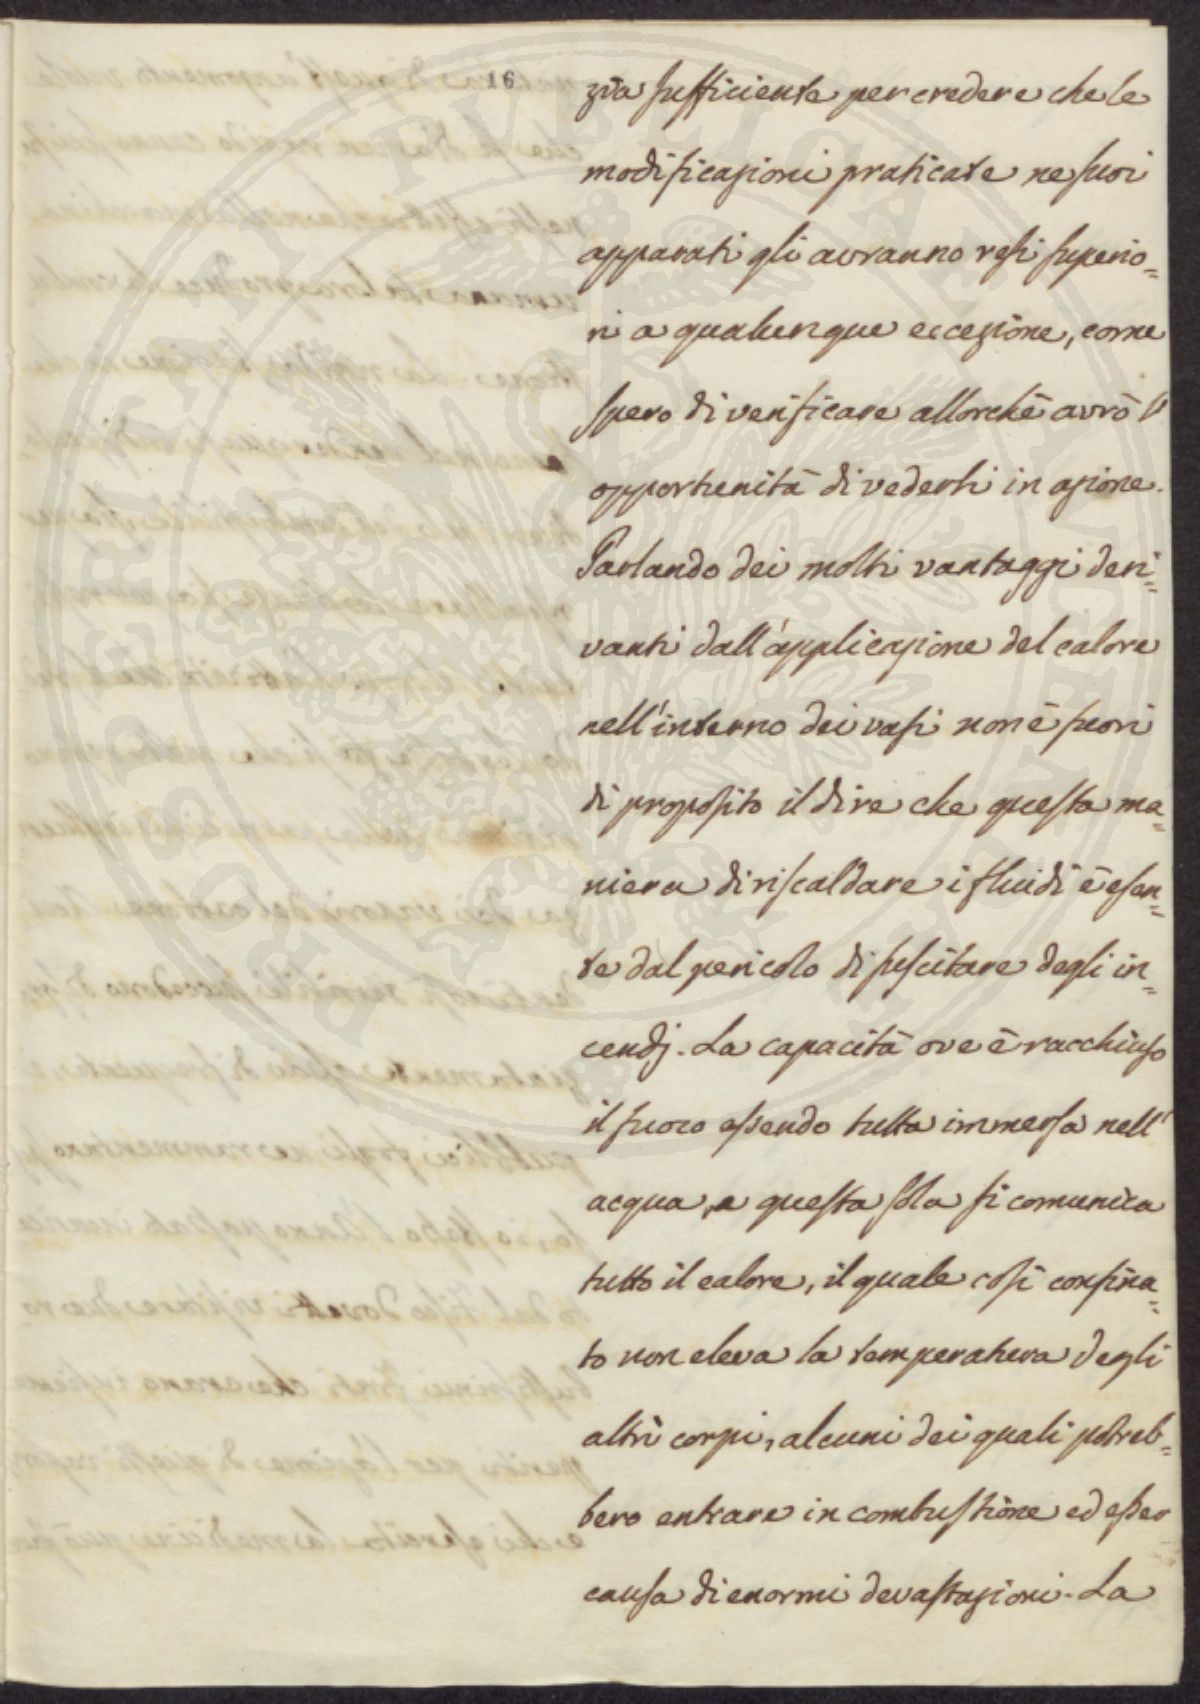 16
zia sufficiente per credere che le
modificazioni praticate ne suoi
apparati gli avranno resi superio=
ri a qualunque eccezione, come
spero di verificare allorchè avrò l'
opportunità di vederli in azione.
Parlando dei molti vantaggi deri=
vanti dall'applicazione del calore
nell'interno dei vasi non è fuori
di proposito il dire che questa ma=
niera di riscaldare i fluidi è esen=
te dal pericolo di suscitare degli in=
cendj. La capacità ove è racchiuso
il fuoco essendo tutta immersa nell'
acqua, a questa sola si comunica
tutto il calore, il quale così confina=
to non eleva la temperatura degli
altri corpi, alcuni dei quali potreb=
bero entrare in combustione ed esser
causa di enormi devastazioni. La
PROSPERITATI PVBLICAE AVGENDAE